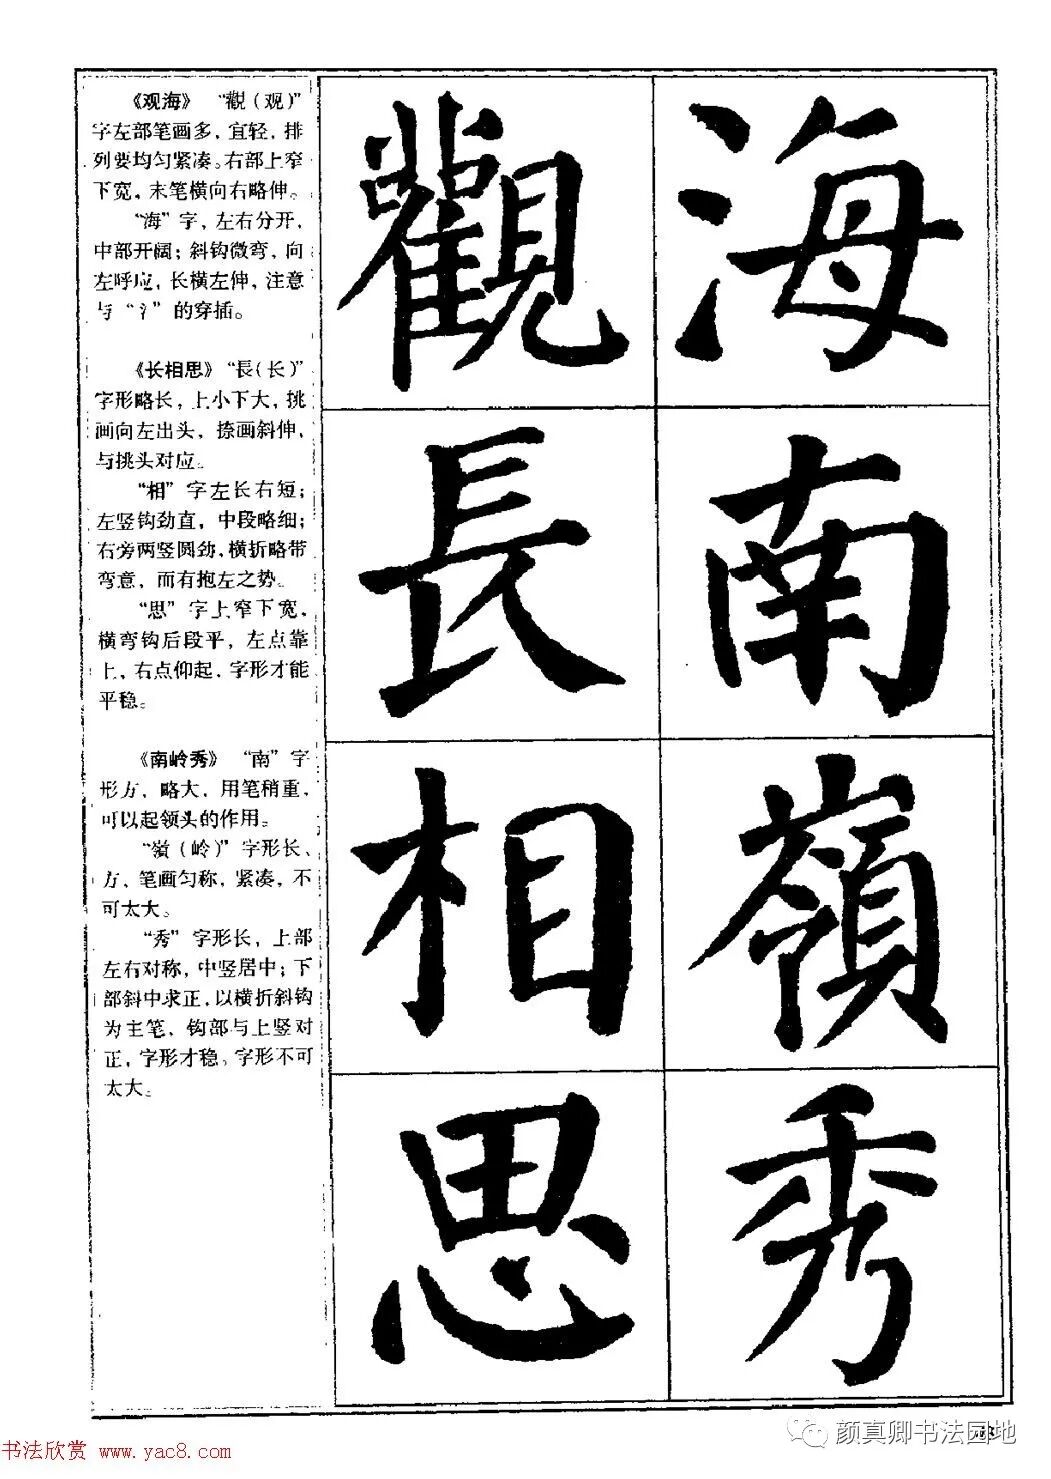 《观海》 “觀(观)”
字左部笔画多，宜轻，排
列要均匀紧凑。右部上窄
下宽，末笔横向右略伸。
“海”字，左右分开，
中部开阔；斜钩微弯，向
左呼应，长横左伸，注意
与“氵”的穿插。
《长相思》“長(长)”
字形略长，上小下大，挑
画向左出头，捺画斜伸，
与挑头对应。
“相”字左长右短；
左竖钩劲直，中段略细；
右旁两竖圆劲，横折略带
弯意，而有抱左之势。
“思”字上窄下宽，
横弯钩后段平，左点靠
上，右点仰起，字形才能
平稳。
《南岭秀》 “南”字
形方，略大，用笔稍重，
可以起领头的作用。
“嶺(岭)”字形长、
方，笔画匀称，紧凑，不
可太大。
“秀”字形长，上部
左右对称，中竖居中；下
部斜中求正，以横折斜钩
为主笔，钩部与上竖对
正，字形才稳。字形不可
太大。
觀海
長南
相嶺
思秀
颜真卿书法园地
书法欣赏 www.yac8.com